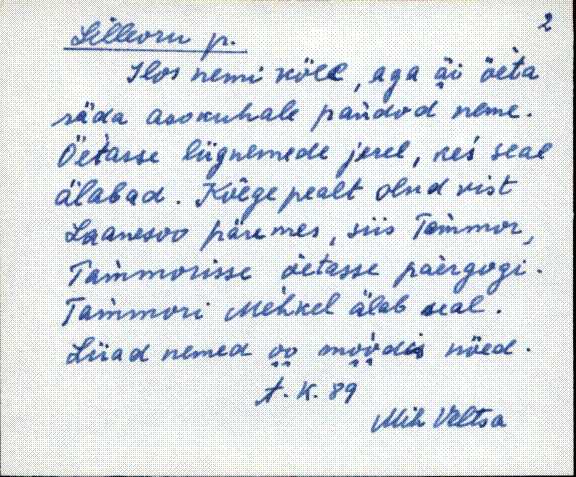 2
Lilleoru p.
Ilos nemi kõll, aga äi õèta
räda asokuhale pandod neme.
Õètasse liignemede jerel, kes seal
älabad. Kõège pealt olnd vist
Laanesoo päremes, siis Tammor,
Tammorisse õètasse paèrgogi.
Tammori Mehkel älab seal.
Liiad nemed oo moodis nõed.
A. K. 89
Mih Veltsa